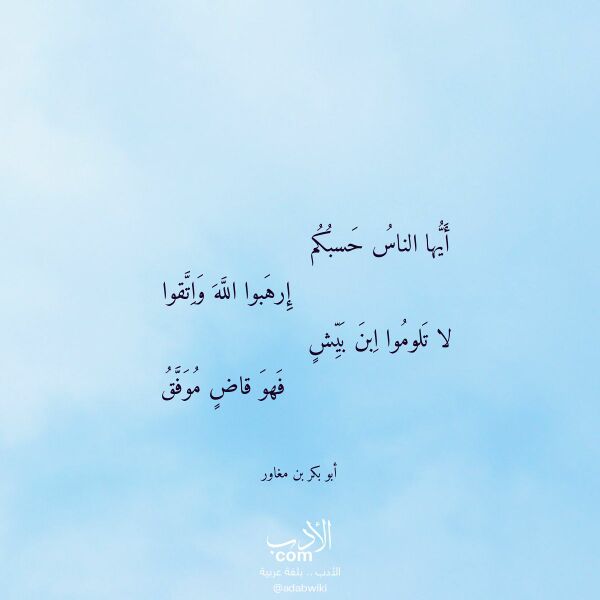 أَيُّها الناسُ حَسبُكُم
إِرهَبوا اللَّهَ وَاِتَّقوا
لا تَلومُوا اِبنَ بَيِّشٍ
فَهوَ قاضٍ مُوَفَّقُ
أبو بكر بن مغاور
الأدب
com
الأدب .. بلغة عربية
@adabwiki